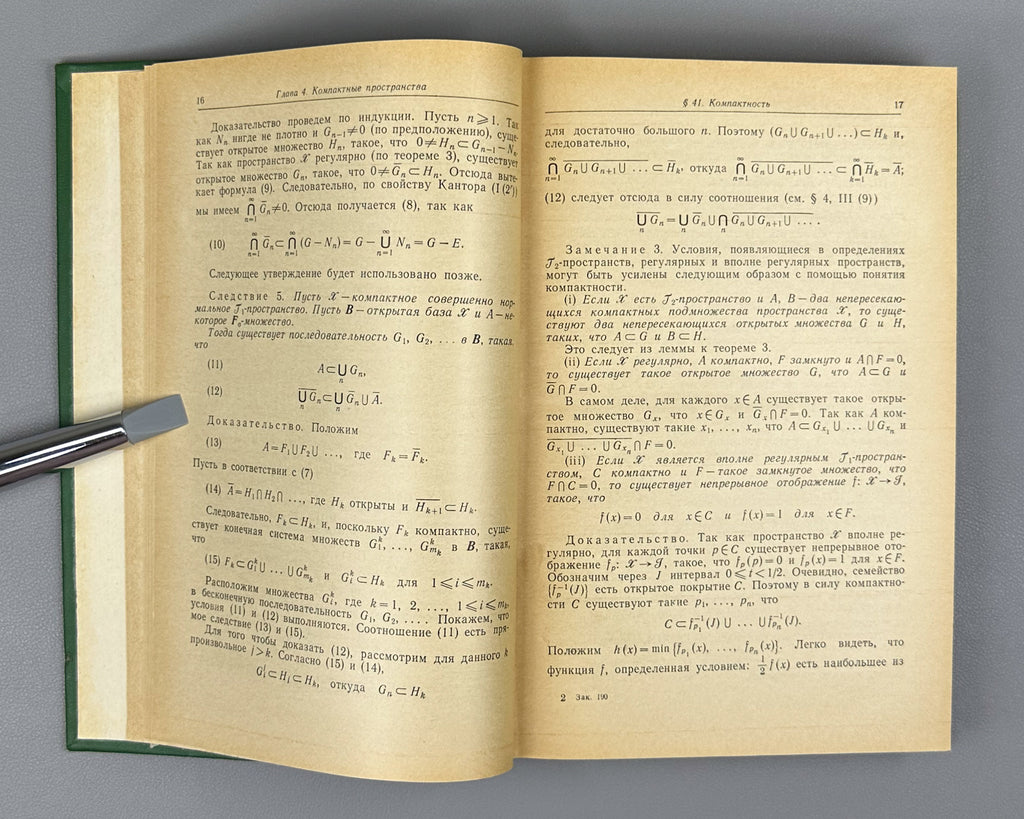 16
Глава 4. Компактные пространства
Доказательство проведем по индукции. Пусть n ⩾ 1. Так
как Nₙ нигде не плотно и Gₙ₋₁ ≠ 0 (по предположению), суще-
ствует открытое множество Hₙ, такое, что 0 ≠ Hₙ ⊂ Gₙ₋₁ − Nₙ.
Так как пространство 𝒳 регулярно (по теореме 3), существует
открытое множество Gₙ, такое, что 0 ≠ G̅ₙ ⊂ Hₙ. Отсюда выте-
кает формула (9). Следовательно, по свойству Кантора (I (2″))
мы имеем ⋂_{n=1}^{∞} G̅ₙ ≠ 0. Отсюда получается (8), так как
(10) ⋂_{n=1}^{∞} G̅ₙ ⊂ ⋂_{n=1}^{∞} (G − Nₙ) = G − ⋃_{n=1}^{∞} Nₙ = G − E.
Следующее утверждение будет использовано позже.
Следствие 5. Пусть 𝒳 — компактное совершенно нор-
мальное 𝒯₁-пространство. Пусть B — открытая база 𝒳 и A — не-
которое F_σ-множество.
Тогда существует последовательность G₁, G₂, ... в B, такая,
что
(11) A ⊂ ⋃_n Gₙ,
(12) \overline{⋃_n Gₙ} ⊂ ⋃_n G̅ₙ ⋃ A̅.
Доказательство. Положим
(13) A = F₁ ⋃ F₂ ⋃ ..., где Fₖ = F̅ₖ.
Пусть в соответствии с (7)
(14) A̅ = H₁ ⋂ H₂ ⋂ ..., где Hₖ открыты и \overline{Hₖ₊₁} ⊂ Hₖ.
Следовательно, Fₖ ⊂ Hₖ, и, поскольку Fₖ компактно, суще-
ствует конечная система множеств G₁ᵏ, ..., G_{mₖ}ᵏ в B, такая,
что
(15) Fₖ ⊂ G₁ᵏ ⋃ ... ⋃ G_{mₖ}ᵏ и Gᵢᵏ ⊂ Hₖ для 1 ⩽ i ⩽ mₖ.
Расположим множества Gᵢᵏ, где k = 1, 2, ..., 1 ⩽ i ⩽ mₖ,
в бесконечную последовательность G₁, G₂, .... Покажем, что
условия (11) и (12) выполняются. Соотношение (11) есть пря-
мое следствие (13) и (15).
Для того чтобы доказать (12), рассмотрим для данного k
произвольное j > k. Согласно (15) и (14),
Gᵢʲ ⊂ Hⱼ ⊂ Hₖ, откуда Gₙ ⊂ Hₖ
§ 41. Компактность
17
для достаточно большого n. Поэтому (Gₙ ⋃ Gₙ₊₁ ⋃ ...) ⊂ Hₖ и,
следовательно,
⋂_{n=1}^{∞} \overline{Gₙ ⋃ Gₙ₊₁ ⋃ ...} ⊂ H̅ₖ, откуда ⋂_{n=1}^{∞} \overline{Gₙ ⋃ Gₙ₊₁ ⋃ ...} ⊂ ⋂_{k=1}^{∞} H̅ₖ = A̅;
(12) следует отсюда в силу соотношения (см. § 4, III (9))
\overline{⋃_n Gₙ} = ⋃_n G̅ₙ ⋃ ⋂_n \overline{Gₙ ⋃ Gₙ₊₁ ⋃ ...}.
Замечание 3. Условия, появляющиеся в определениях
𝒯₂-пространств, регулярных и вполне регулярных пространств,
могут быть усилены следующим образом с помощью понятия
компактности.
(i) Если 𝒳 есть 𝒯₂-пространство и A, B — два непересекаю-
щихся компактных подмножества пространства 𝒳, то суще-
ствуют два непересекающихся открытых множества G и H,
таких, что A ⊂ G и B ⊂ H.
Это следует из леммы к теореме 3.
(ii) Если 𝒳 регулярно, A компактно, F замкнуто и A ⋂ F = 0,
то существует такое открытое множество G, что A ⊂ G и
G̅ ⋂ F = 0.
В самом деле, для каждого x ∈ A существует такое откры-
тое множество Gₓ, что x ∈ Gₓ и G̅ₓ ⋂ F = 0. Так как A ком-
пактно, существуют такие x₁, ..., xₙ, что A ⊂ G_{x₁} ⋃ ... ⋃ G_{xₙ} и
\overline{G_{x₁} ⋃ ... ⋃ G_{xₙ}} ⋂ F = 0.
(iii) Если 𝒳 является вполне регулярным 𝒯₁-простран-
ством, C компактно и F — такое замкнутое множество, что
F ⋂ C = 0, то существует непрерывное отображение f: 𝒳 → 𝒥,
такое, что
f(x) = 0 для x ∈ C и f(x) = 1 для x ∈ F.
Доказательство. Так как пространство 𝒳 вполне ре-
гулярно, для каждой точки p ∈ C существует непрерывное ото-
бражение fₚ: 𝒳 → 𝒥, такое, что fₚ(p) = 0 и fₚ(x) = 1 для x ∈ F.
Обозначим через J интервал 0 ⩽ t < 1/2. Очевидно, семейство
{fₚ⁻¹(J)} есть открытое покрытие C. Поэтому в силу компактно-
сти C существуют такие p₁, ..., pₙ, что
C ⊂ f_{p₁}⁻¹(J) ⋃ ... ⋃ f_{pₙ}⁻¹(J).
Положим h(x) = min {f_{p₁}(x), ..., f_{pₙ}(x)}. Легко видеть, что
функция f, определенная условием: ½ f(x) есть наибольшее из
2 Зак. 190